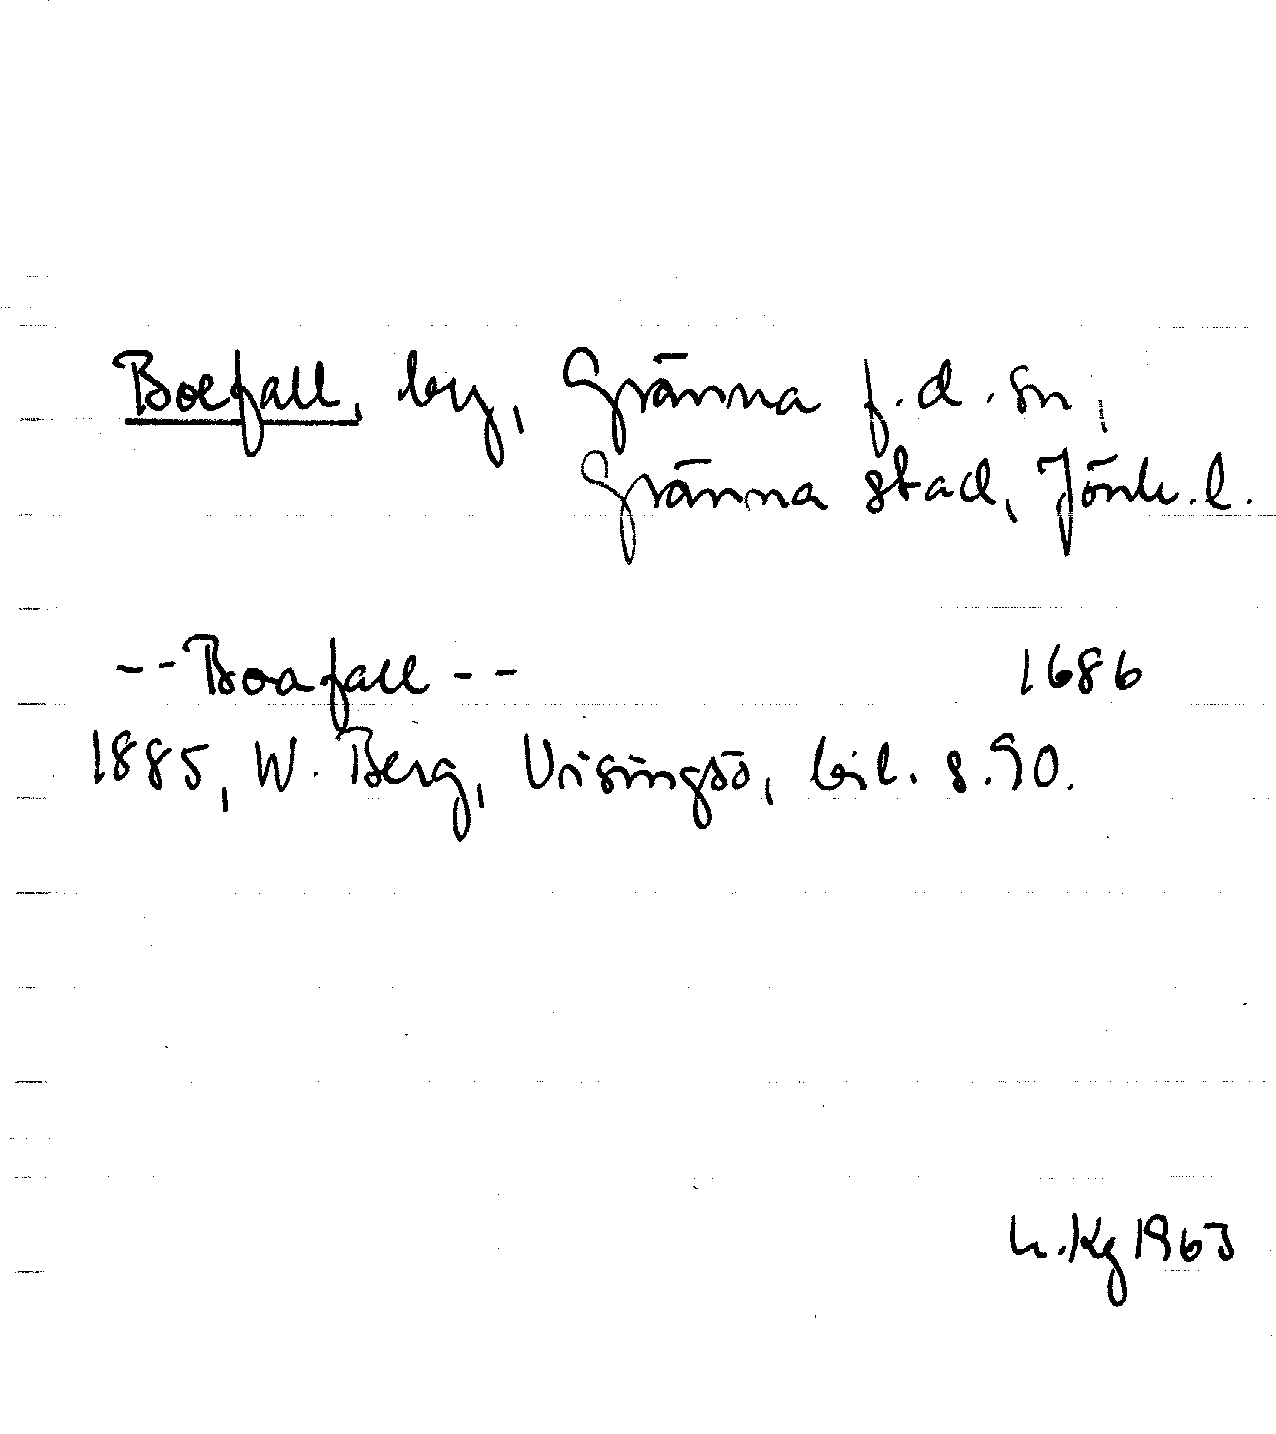 Boefall, by, Gränna f.d. sn,
Gränna stad, Jönk. l.
-- Boafall -- 1686
1885, W. Berg, Visingsö, bil. s. 90.
h.Kg 1963